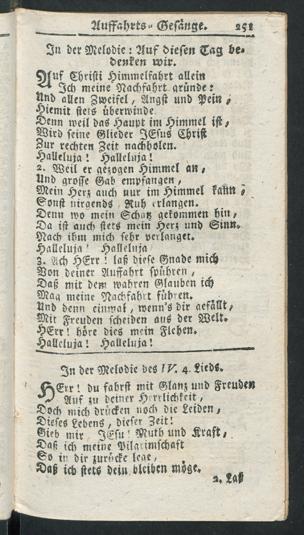 Auffahrts-Gesänge. 251
In der Melodie: Auf diesen Tag be-
denken wir.
Auf Christi Himmelfahrt allein
Ich meine Nachfahrt gründe:
Und allen Zweifel, Angst und Pein,
Hiemit stets überwinde.
Denn weil das Haupt im Himmel ist,
Wird seine Glieder JEsus Christ
Zur rechten Zeit nachholen.
Halleluja! Halleluja!
2. Weil er gezogen Himmel an,
Und grosse Gab empfangen,
Mein Herz auch nur im Himmel kann,
Sonst nirgends Ruh erlangen.
Denn wo mein Schatz gekommen hin,
Da ist auch stets mein Herz und Sinn.
Nach ihm mich sehr verlanget.
Halleluja! Halleluja
3. Ach HErr! laß diese Gnade mich
Von deiner Auffahrt spühren,
Daß mit dem wahren Glauben ich
Mag meine Nachfahrt führen.
Und denn einmal, wenn's dir gefällt,
Mit Freuden scheiden aus der Welt.
HErr! höre dies mein Flehen.
Halleluja! Halleluja!
In der Melodie des IV. 4. Lieds.
HErr! du fahrst mit Glanz und Freuden
Auf zu deiner Herrlichkeit,
Doch mich drücken noch die Leiden,
Dieses Lebens, dieser Zeit!
Gieb mir, JEsu! Muth und Kraft,
Daß ich meine Pilgrimschaft
So in dir zurücke lege,
Daß ich stets dein bleiben möge.
2. Laß